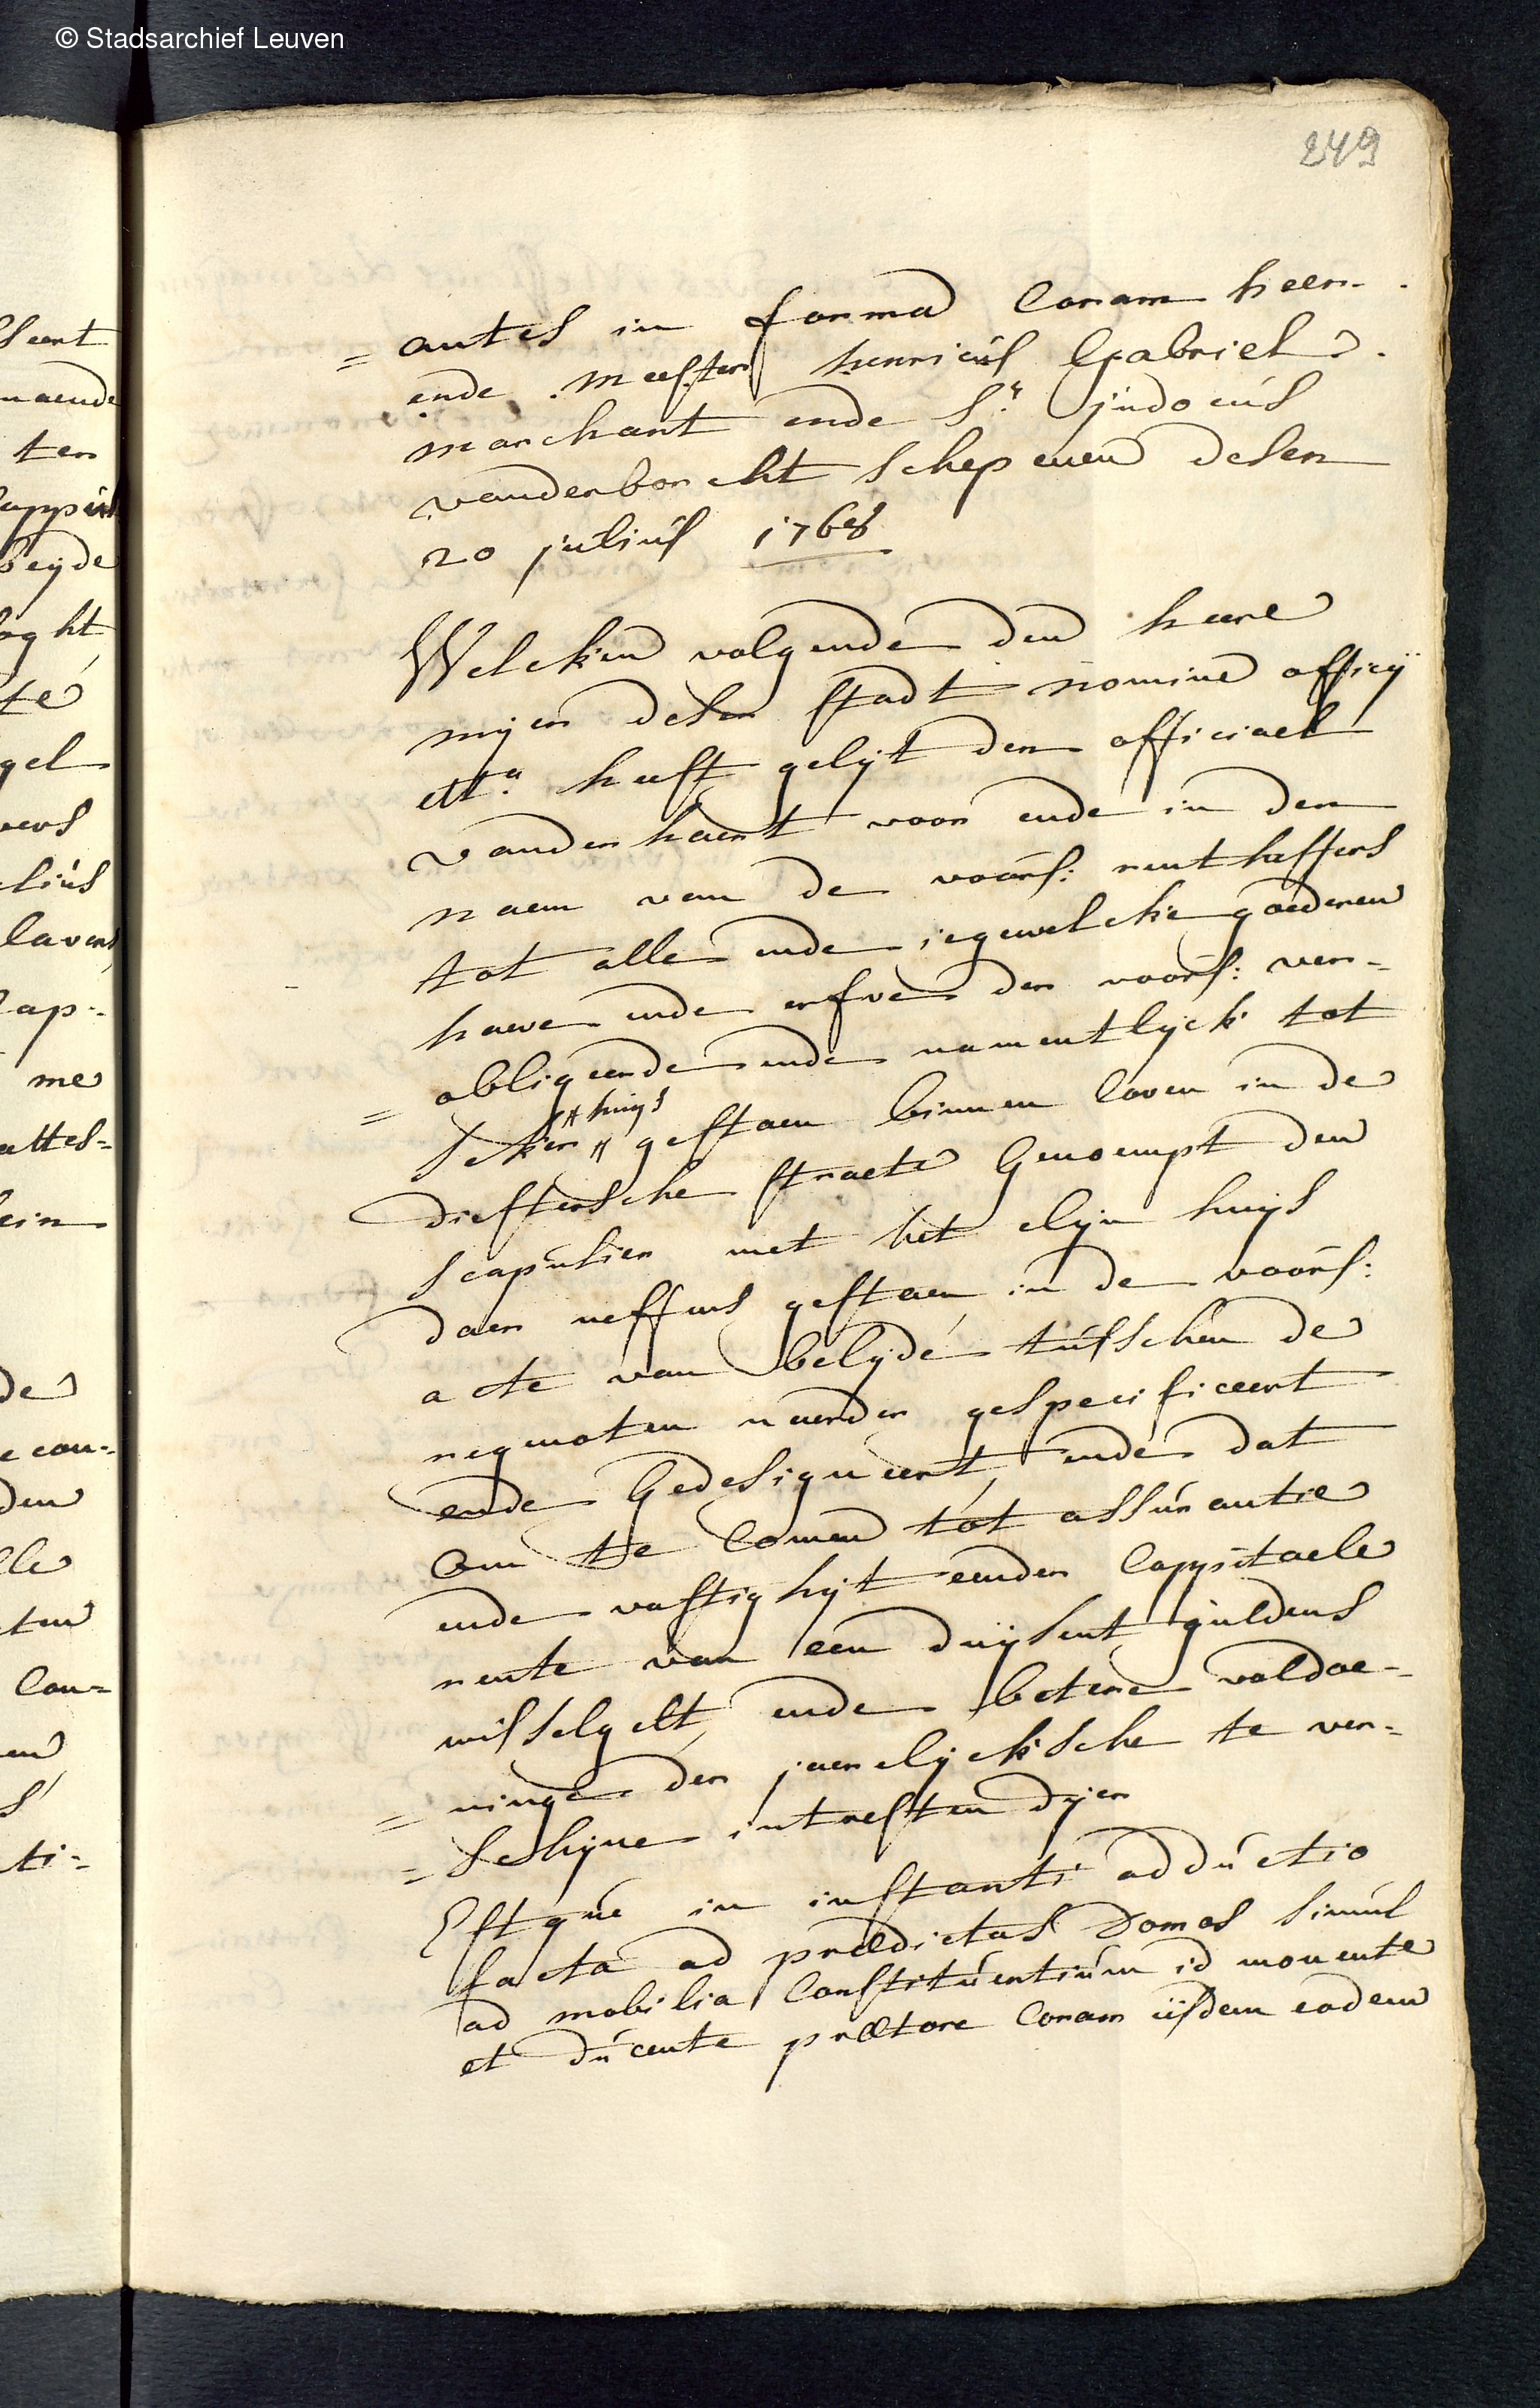 © Stadsarchief Leuven
249
= antes in forma Coram heer
ende Meester henricus Gabriel
marchant ende Sr judocus
vanderborcht schepenen deser
20 julius 1768
Welcken volgende den heere
myer deser stadt nomine officij
etta heeft gelyt den officiael
vanderhaert voor ende in den
naem van de voors: rentheffers
tot alle ende iegewelcke goederen
have ende erfve der voors: ver-
= obligeerde ende namentlyck tot
seker huys gestaen binnen loven in de
diestersche straete Genoempt den
scapulier met het clyn huys
daer neffens gestaen, in de voors:
acte van belyde tusschen de
regenoten naerder gespecificeert
ende Gedesigneert, ende dat
om te Comen tot assurantie
ende vastighyt eender Cappitaele
rente van een duysent guldens
wisselgelt, ende betere voldoe-
= ninge der jaerelycksche te ver-
= schyne intresten dyer
Estque in instanti adductio
facta ad prædictas Domos simul
ad mobilia Constituentium id movente
et ducente prætore Coram iisdem eodem